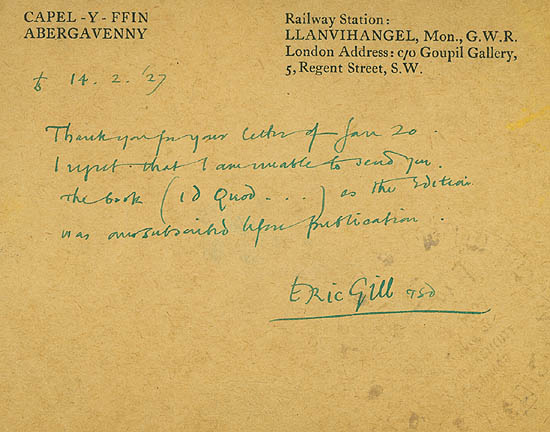 CAPEL-Y-FFIN
ABERGAVENNY
Railway Station:
LLANVIHANGEL, Mon., G.W.R.
London Address: c/o Goupil Gallery,
5, Regent Street, S.W.
14. 2. '27
Thank you for your letter of Jan 20.
I regret that I am unable to send you
the book (Id Quod . . . ) as the Edition
was oversubscribed before publication.
Eric Gill TSD